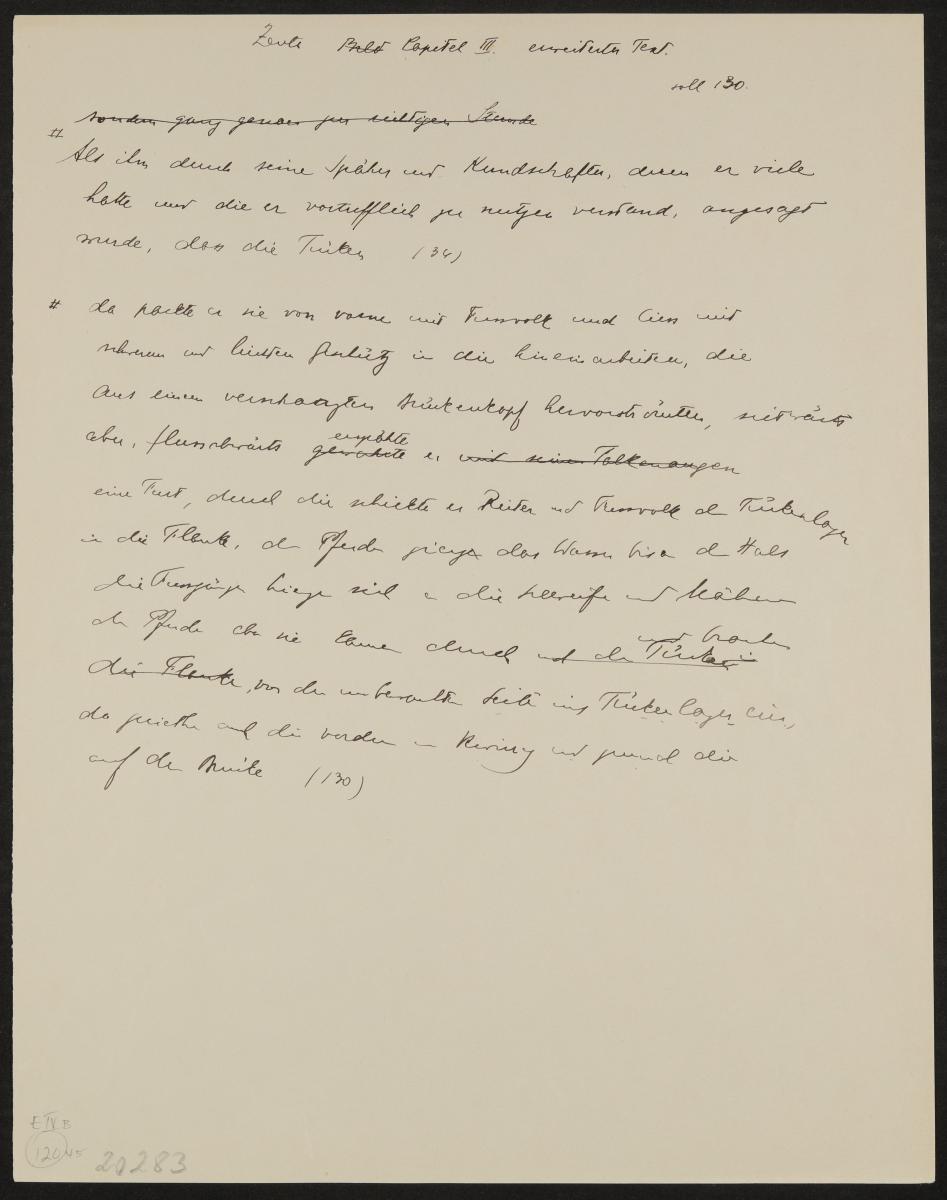 Zenta Bild Capitel III. erweiterter Text.
soll 130.
sondern ganz genau zur richtigen Stunde
#
Als ihm durch seine Späher und Kundschafter, deren er viele
hatte und die er vortrefflich zu nutzen verstand, angesagt
wurde, dass die Türken (34)
# da packte er sie von vorne mit Fussvolk und liess mit
schwerem und leichtem Geschütz in die hineinarbeiten, die
aus einem verschanzten Brückenkopf hervorströmten, seitwärts
aber, flussabwärts gewahrte erspähte er mit seinen Falkenaugen
eine Furt, durch die schickte er Reiter und Fussvolk dem Türkenlager
in die Flanke, den Pferden gieng das Wasser bis an den Hals
die Fussgänger hiengen sich an die und Mähnen
der Pferde aber sie kamen durch und den Türken in und brachen
die Flanke, von der unbewachten Seite ins Türkenlager ein,
da geriethen auch die vorderen in Verwirrung und zumal die
auf der Brücke (130)
E IV B
120.45
20283